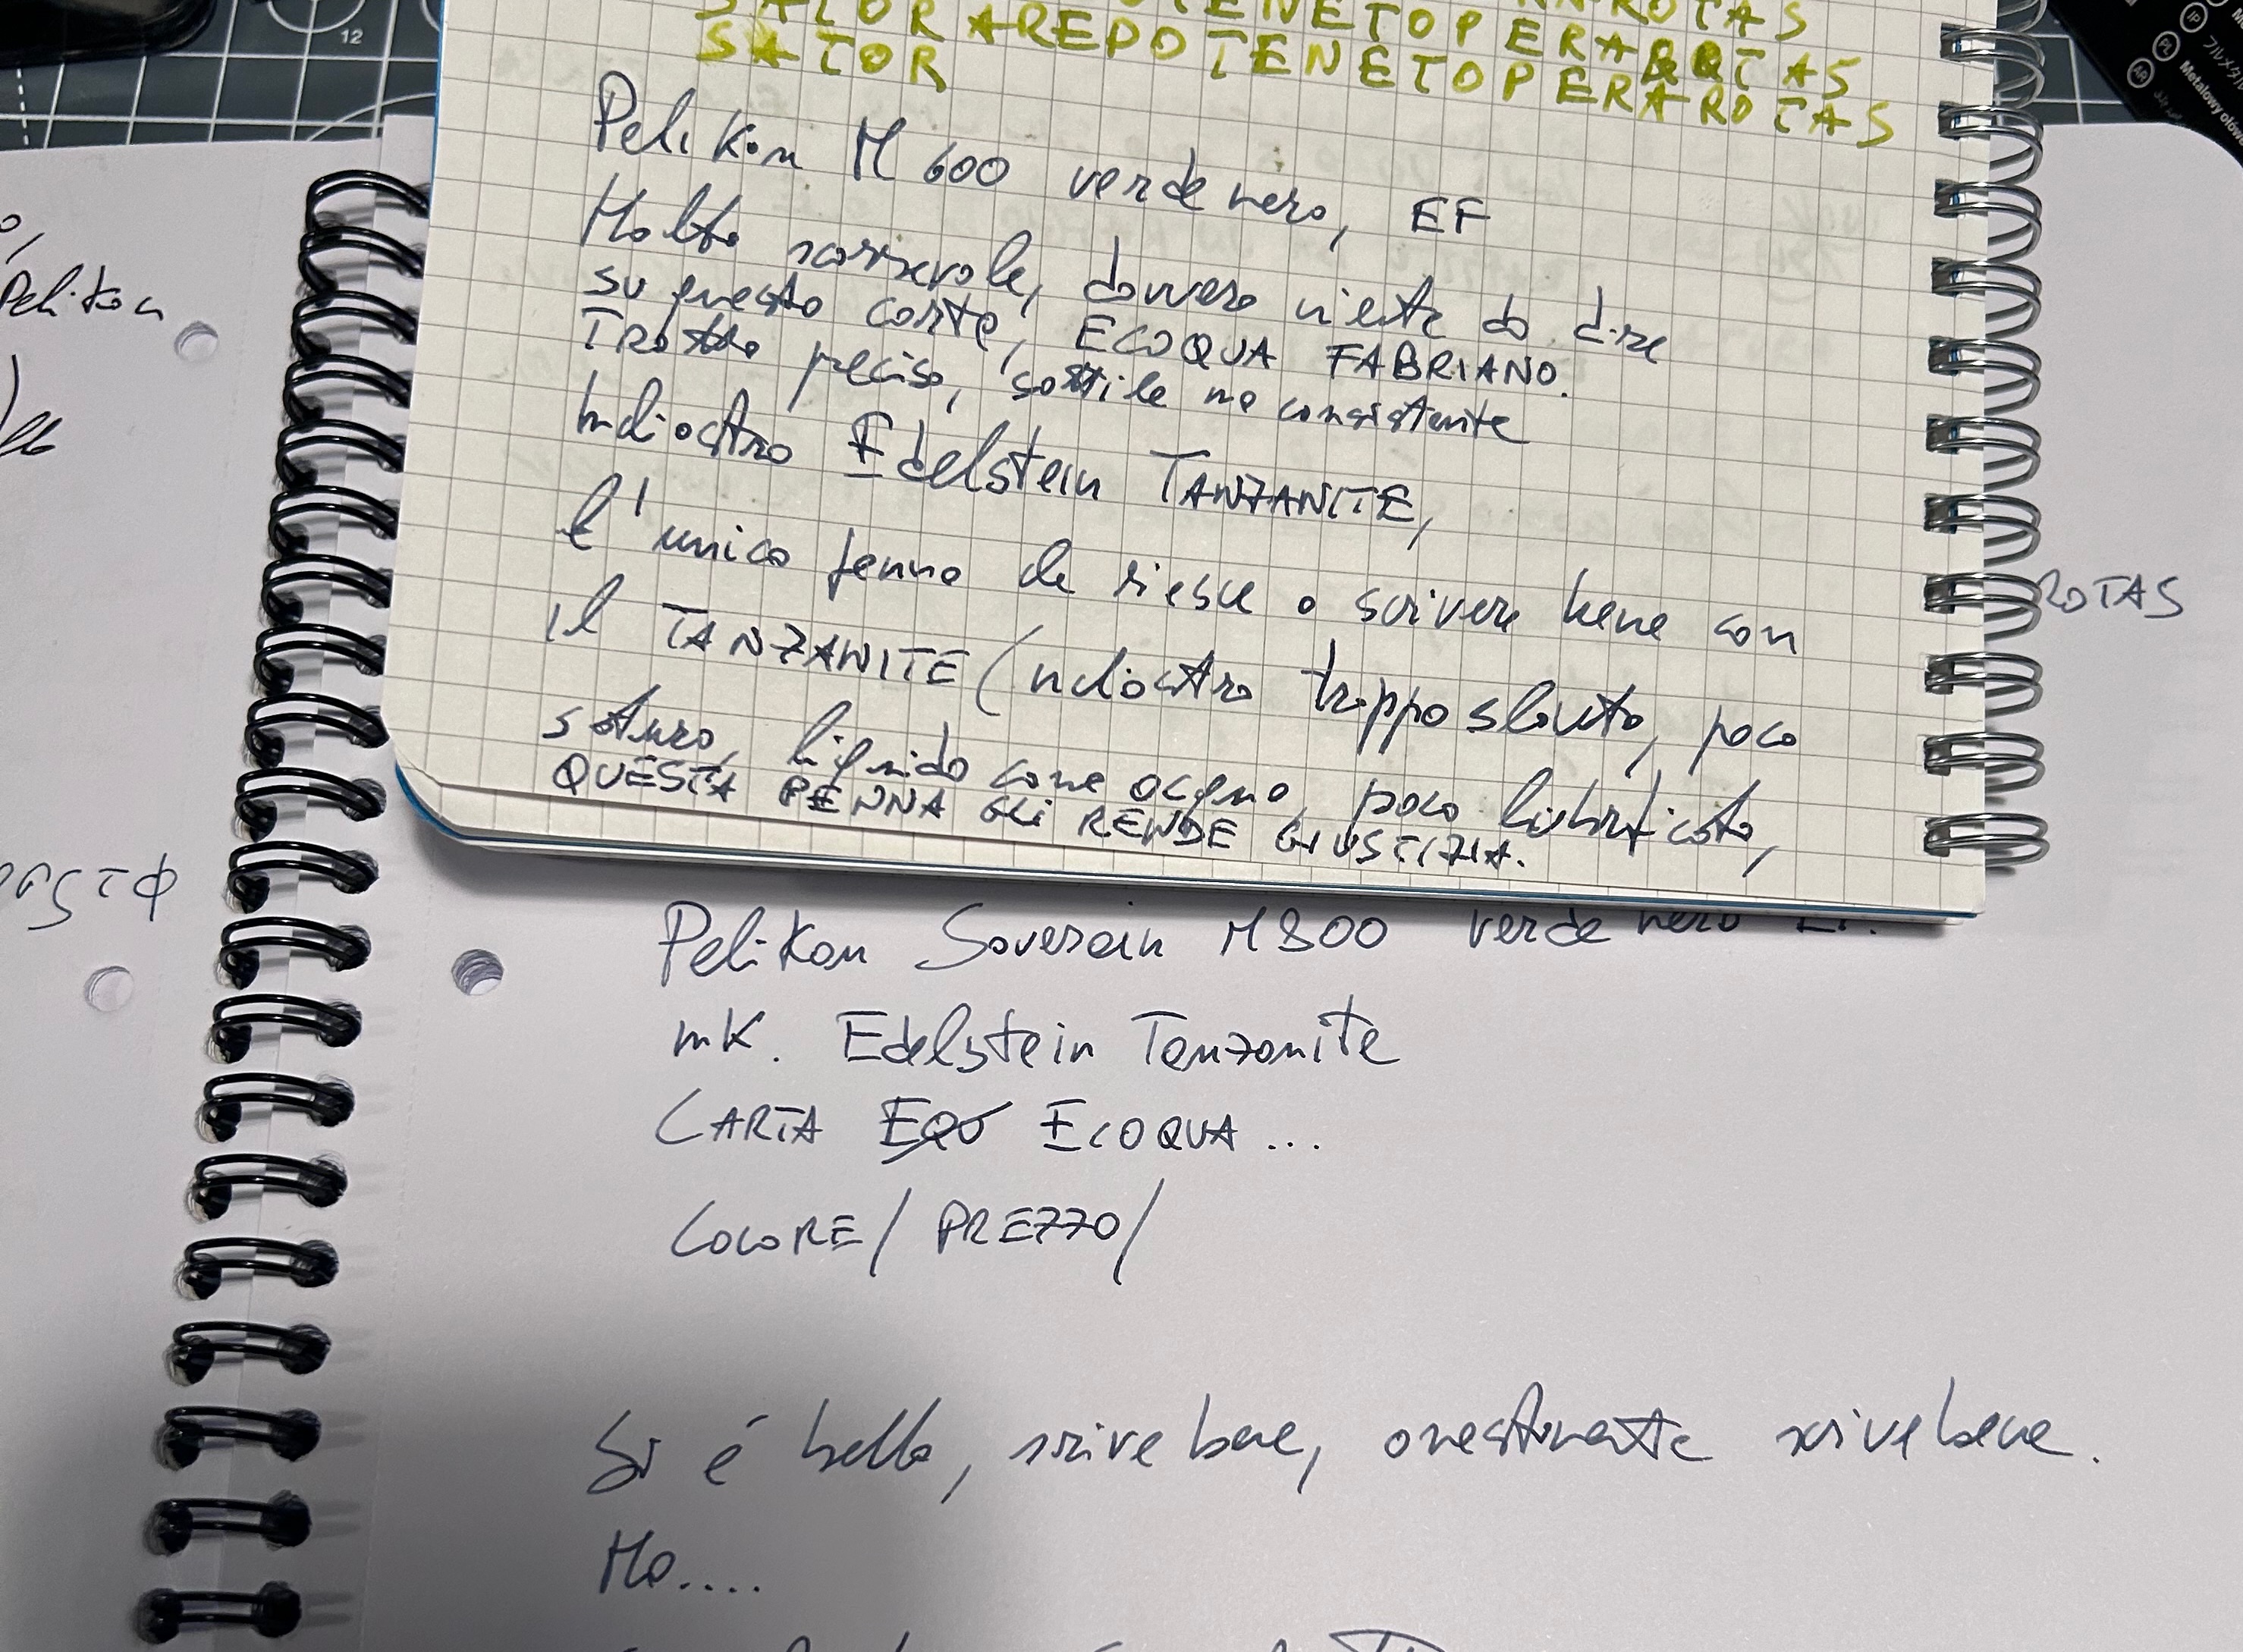 SATOR AREPO TENET OPERA ROTAS
SATOR AREPO TENET OPERA ROTAS
Pelikan M 600 verde nero, EF
Molto scorrevole, davvero niente da dire
su questa carta, ECOQUA FABRIANO.
Tratto preciso, sottile ma consistente
Indiostro Edelstein TANZANITE,
è l'unica penna che riesce a scrivere bene con
il TANZANITE (ndiostro troppo slavato, poco
saturo, liquido come acqua, poco lubrificato,
QUESTA PENNA GLI RENDE GIUSTIZIA.
Pelikan Soverain M800 verde nero EF.
mk. Edelstein Tanzanite
CARTA EQO ECOQUA ...
COLORE/ PREZZO/
Si è bella, scrive bene, onestamente scrive bene.
Ma....
Pelikan
ROTAS
12
Metalowy ołówe